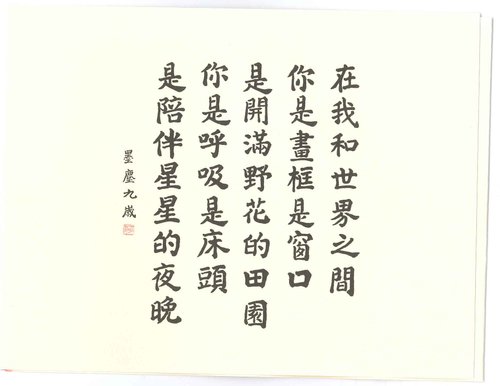 在我和世界之間
你是畫框是窗口
是開滿野花的田園
你是呼吸是床頭
是陪伴星星的夜晚
墨塵九歲